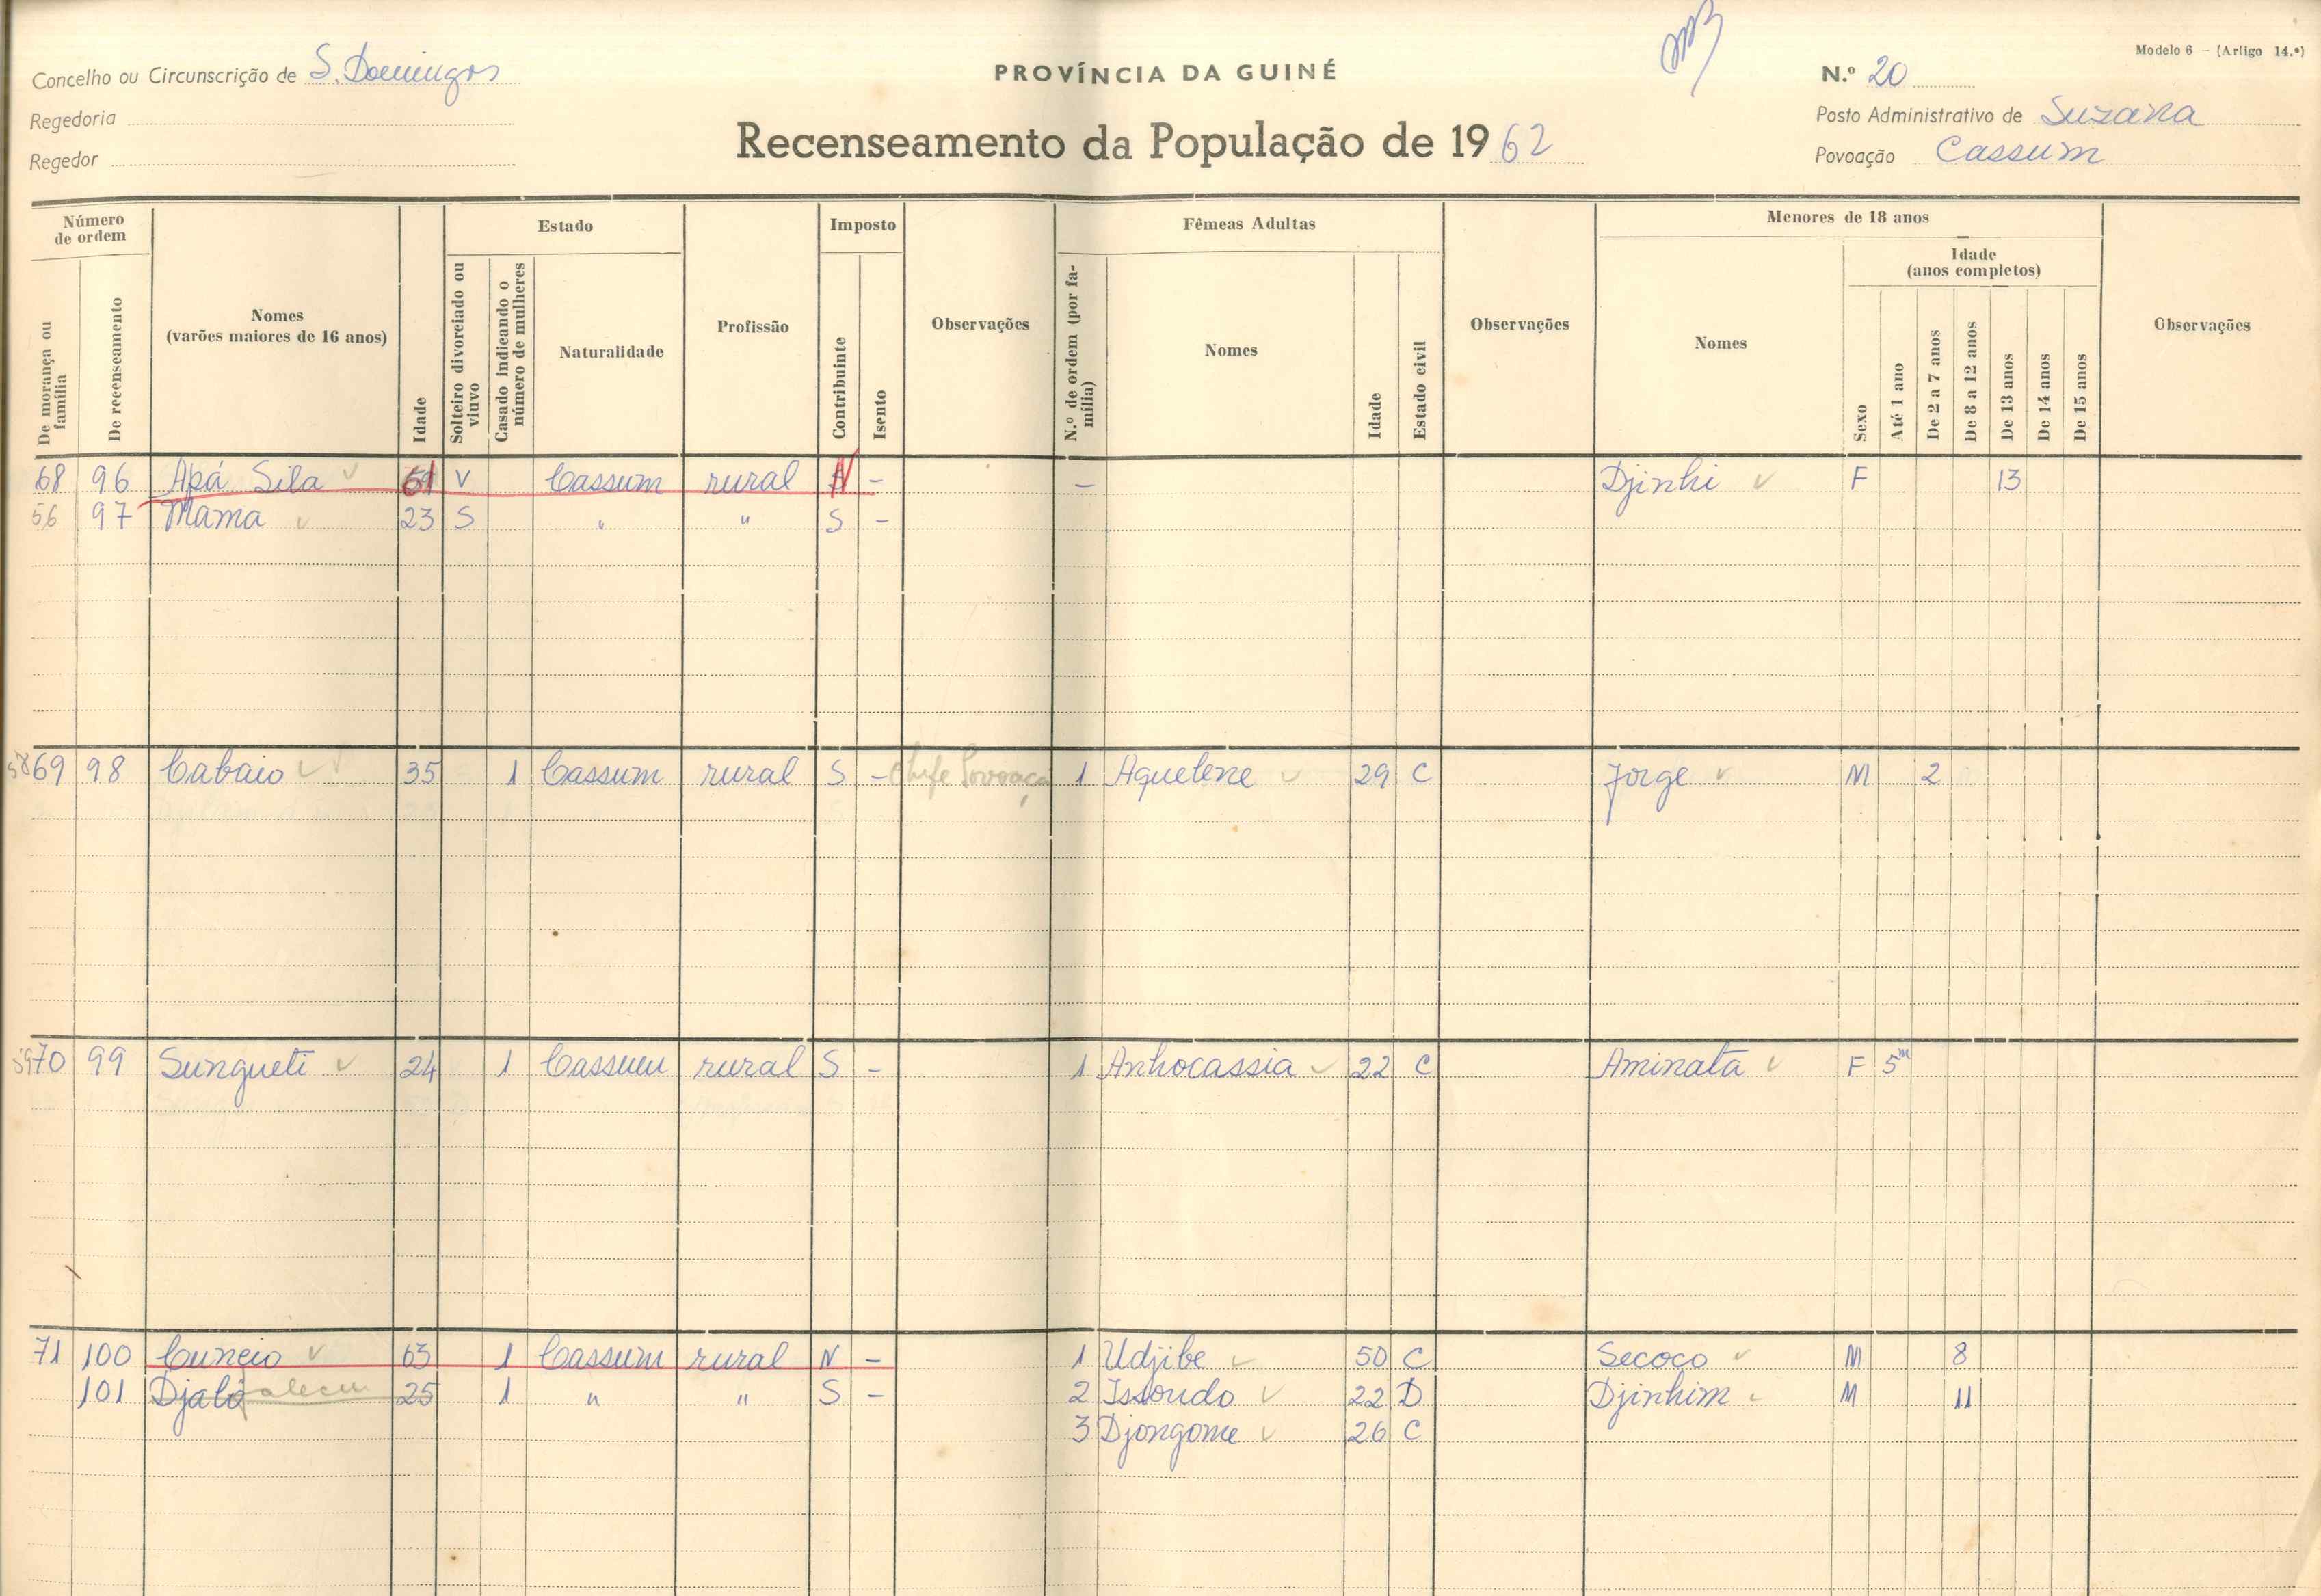 Modelo 6 - (Artigo 14.º)
Concelho ou Circunscrição de S. Domingos
PROVÍNCIA DA GUINÉ
N.º 20
Regedoria
Posto Administrativo de Suzana
Recenseamento da População de 1962
Regedor
Povoação Cassum
Número de ordem
De morança ou família
De recenseamento
Nomes
(varões maiores de 16 anos)
Idade
Estado
Solteiro divorciado ou viuvo
Casado indicando o número de mulheres
Naturalidade
Profissão
Imposto
Contribuinte
Isento
Observações
Fêmeas Adultas
N.º de ordem (por família)
Nomes
Idade
Estado civil
Observações
Menores de 18 anos
Nomes
Sexo
Idade
(anos completos)
Até 1 ano
De 2 a 7 anos
De 8 a 12 anos
De 13 anos
De 14 anos
De 15 anos
Observações
68 96 Apá Sila V Cassum rural N - - Djinhi F 13
56 97 Mama 23 S " " S -
58 69 98 Cabaio 35 1 Cassum rural S - Chefe Povoação 1 Aquelene 29 C Jorge M 2
59 70 99 Sungueti 24 1 Cassum rural S - 1 Anhocassia 22 C Aminata F 5m
71 100 Cuncio 63 1 Cassum rural N - 1 Udjibe 50 C Secoco M 8
101 Djaló 25 1 " " S - 2 Issondo 22 D Djinhim M 11
3 Djongome 26 C